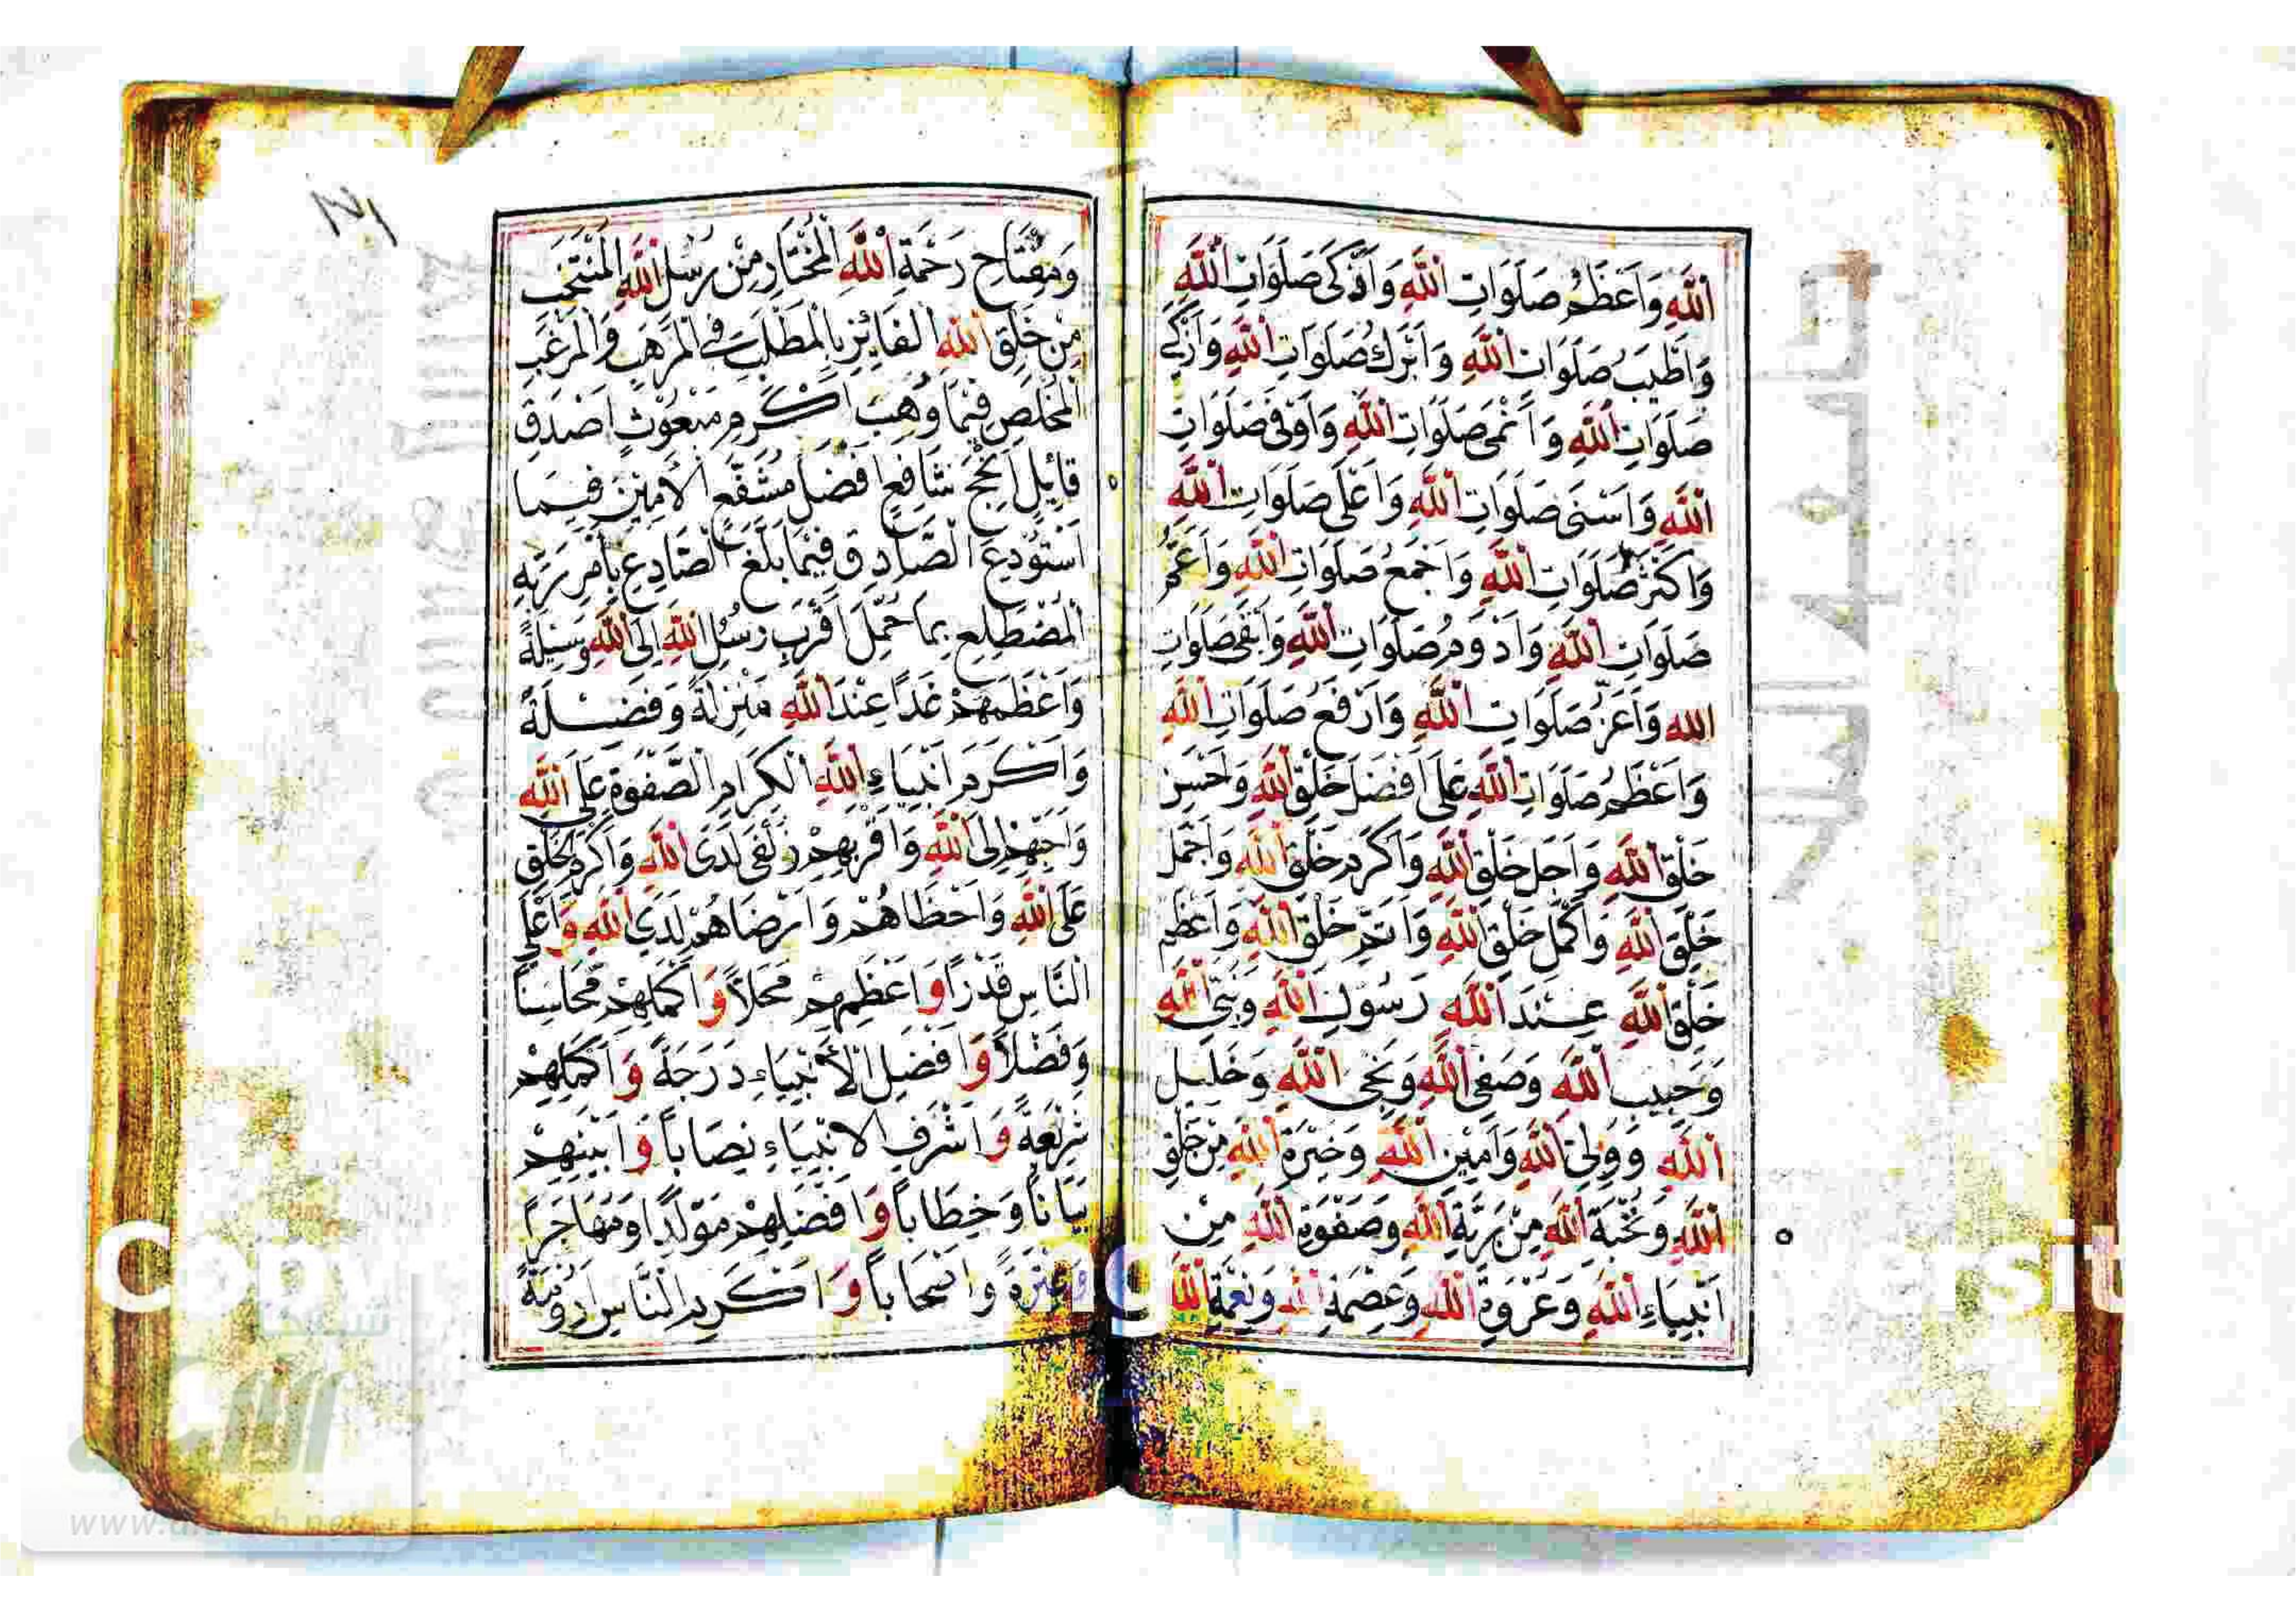 اَللّٰهِ وَاَعْظَمُ صَلَوَاتِ اللّٰهِ وَاَذْكَى صَلَوَاتِ اللّٰهِ
وَاَطْيَبُ صَلَوَاتِ اللّٰهِ وَاَبْرَكُ صَلَوَاتِ اللّٰهِ وَاَزْكَى
صَلَوَاتِ اللّٰهِ وَاَنْمَى صَلَوَاتِ اللّٰهِ وَاَوْفَى صَلَوَاتِ
اللّٰهِ وَاَسْنَى صَلَوَاتِ اللّٰهِ وَاَعْلَى صَلَوَاتِ اللّٰهِ
وَاَكْثَرُ صَلَوَاتِ اللّٰهِ وَاَجْمَعُ صَلَوَاتِ اللّٰهِ وَاَعَمُّ
صَلَوَاتِ اللّٰهِ وَاَدْوَمُ صَلَوَاتِ اللّٰهِ وَاَبْقَى صَلَوَاتِ
الله وَاَعَزُّ صَلَوَاتِ اللّٰهِ وَاَرْفَعُ صَلَوَاتِ اللّٰهِ
وَاَعْظَمُ صَلَوَاتِ اللّٰهِ عَلَى اَفْضَلِ خَلْقِ اللّٰهِ وَحَسَنِ
خَلْقِ اللّٰهِ وَاَجَلِّ خَلْقِ اللّٰهِ وَاَكْرَمِ خَلْقِ اللّٰهِ وَاَجْمَلِ
خَلْقِ اللّٰهِ وَاَكْمَلِ خَلْقِ اللّٰهِ وَاَتَمِّ خَلْقِ اللّٰهِ وَاَعْظَمِ
خَلْقِ اللّٰهِ عِنْدَ اللّٰهِ رَسُوْلِ اللّٰهِ وَنَبِيِّ اللّٰهِ
وَحَبِيْبِ اللّٰهِ وَصَفِيِّ اللّٰهِ وَنَجِيِّ اللّٰهِ وَخَلِيْلِ
اللّٰهِ وَوَلِيِّ اللّٰهِ وَاَمِيْنِ اللّٰهِ وَخِيَرَةِ اللّٰهِ مِنْ خَلْقِ
اللّٰهِ وَنُخْبَةِ اللّٰهِ مِنْ بَرِيَّةِ اللّٰهِ وَصَفْوَةِ اللّٰهِ مِنْ
اَنْبِيَاءِ اللّٰهِ وَعُرْوَةِ اللّٰهِ وَعِصْمَةِ اللّٰهِ وَنِعْمَةِ اللّٰهِ
وَمِفْتَاحِ رَحْمَةِ اللّٰهِ الْمُخْتَارِ مِنْ رُسُلِ اللّٰهِ الْمُنْتَخَبِ
مِنْ خَلْقِ اللّٰهِ الْفَائِزِ بِالْمَطْلَبِ فِي الْمَرْهَبِ وَالْمَرْغَبِ
الْمُخْلَصِ فِيْمَا وُهِبَ اَكْرَمِ مَبْعُوْثٍ اَصْدَقِ
قَائِلٍ اَنْجَحِ شَافِعٍ اَفْضَلِ مُشَفَّعٍ الْاَمِيْنِ فِيْمَا
اسْتُوْدِعَ الصَّادِقِ فِيْمَا بَلَّغَ الصَّادِعِ بِاَمْرِ رَبِّهِ
الْمُضْطَلِعِ بِمَا حُمِّلَ اَقْرَبِ رُسُلِ اللّٰهِ اِلَى اللّٰهِ وَسِيْلَةً
وَاَعْظَمِهِمْ غَدًا عِنْدَ اللّٰهِ مَنْزِلَةً وَفَضِيْلَةً
وَاَكْرَمِ اَنْبِيَاءِ اللّٰهِ الْكِرَامِ الصَّفْوَةِ عَلَى اللّٰهِ
وَاَحَبِّهِمْ اِلَى اللّٰهِ وَاَقْرَبِهِمْ زُلْفَى لَدَى اللّٰهِ وَاَكْرَمِ الْخَلْقِ
عَلَى اللّٰهِ وَاَحْظَاهُمْ وَاَرْضَاهُمْ لَدَى اللّٰهِ وَاَعْلَى
النَّاسِ قَدْرًا وَاَعْظَمِهِمْ مَحَلًّا وَاَكْمَلِهِمْ مَحَاسِنًا
وَفَضْلًا وَاَفْضَلِ الْاَنْبِيَاءِ دَرَجَةً وَاَكْمَلِهِمْ
شَرِيْعَةً وَاَشْرَفِ الْاَنْبِيَاءِ نِصَابًا وَاَبْيَنِهِمْ
بَيَانًا وَخِطَابًا وَاَفْضَلِهِمْ مَوْلِدًا وَمُهَاجَرًا
وَعِتْرَةً وَاَصْحَابًا وَاَكْرَمِ النَّاسِ اَرُوْمَةً